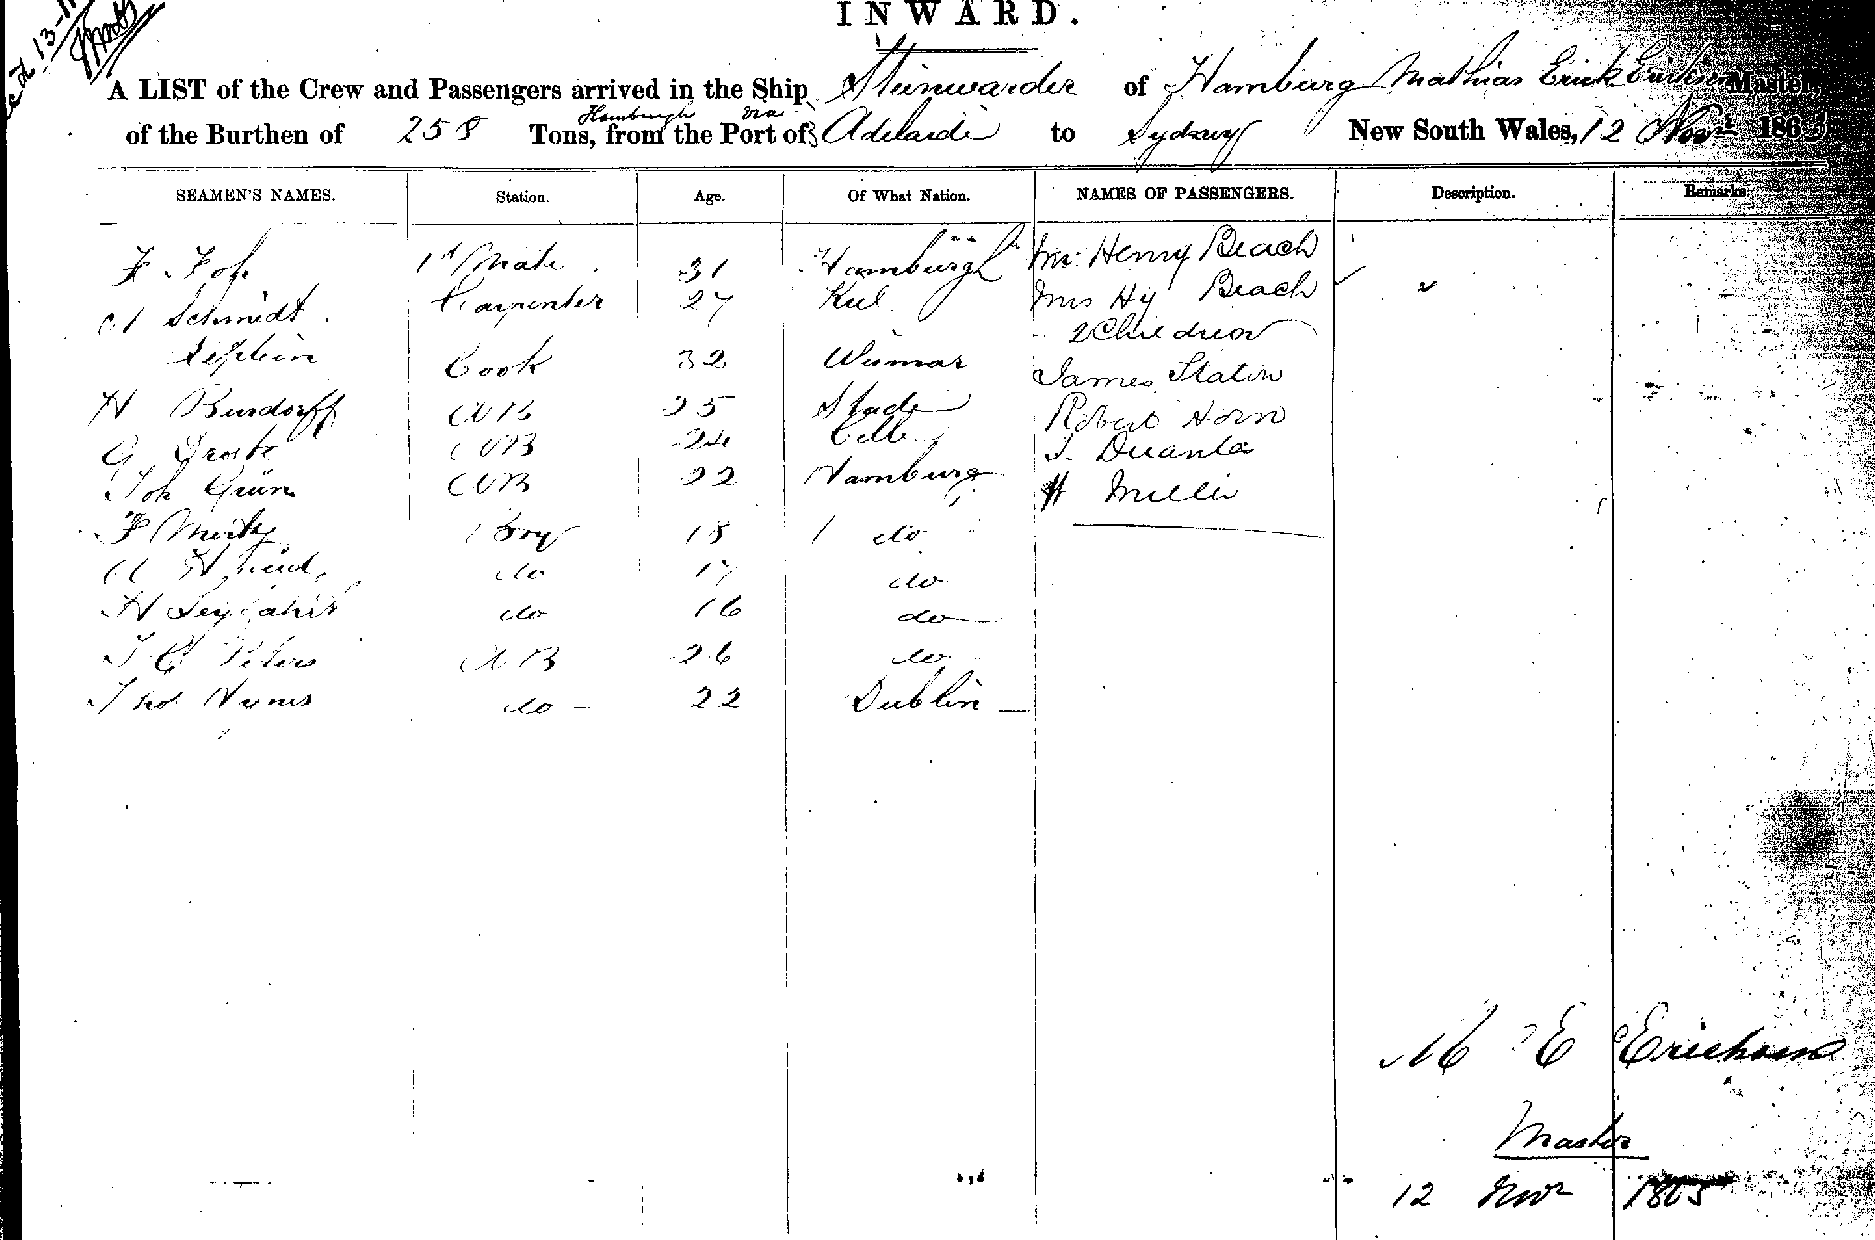 INWARD.
A LIST of the Crew and Passengers arrived in the Ship Steinwarder of Hamburg Mathias Erick Erichsen Master
Hamburgh via
of the Burthen of 258 Tons, from the Port of Adelaide to Sydney New South Wales, 12 Novr 1865
SEAMEN'S NAMES. Station. Age. Of What Nation. NAMES OF PASSENGERS. Description. Remarks.
F. 1st Mate 31 Hamburgh Mr Henry Beach
Schmidt Carpenter 27 Kiel Mrs Hy Beach
2 Children
Cook 32 Wismar James
H Burdorff AB 25 Stade Robert Horn
G AB 24 Celle
Joh Grün AB 22 Hamburg H Miller
F Boy 18 do
do 17 do
H do 16 do
J C Peters AB 26 do
Thos Hynes do - 22 Dublin
M E Erichsen
Master
12 Novr 1865